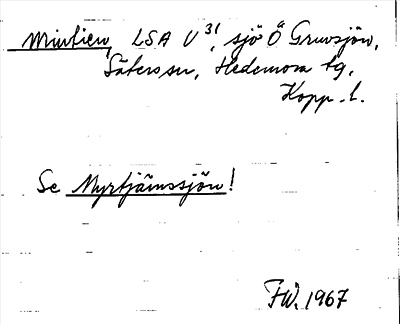 LSA V 31, sjö Ö Gruvsjön,
Säters sn, Hedemora tg,
Kopp. l.
Se Myrtjärnssjön!
FW. 1967